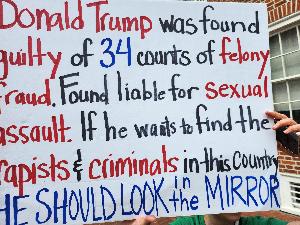 Donald Trump was found
guilty of 34 counts of felony
fraud. Found liable for sexual
assault. If he wants to find the
rapists & criminals in this Country
HE SHOULD LOOK in the MIRROR